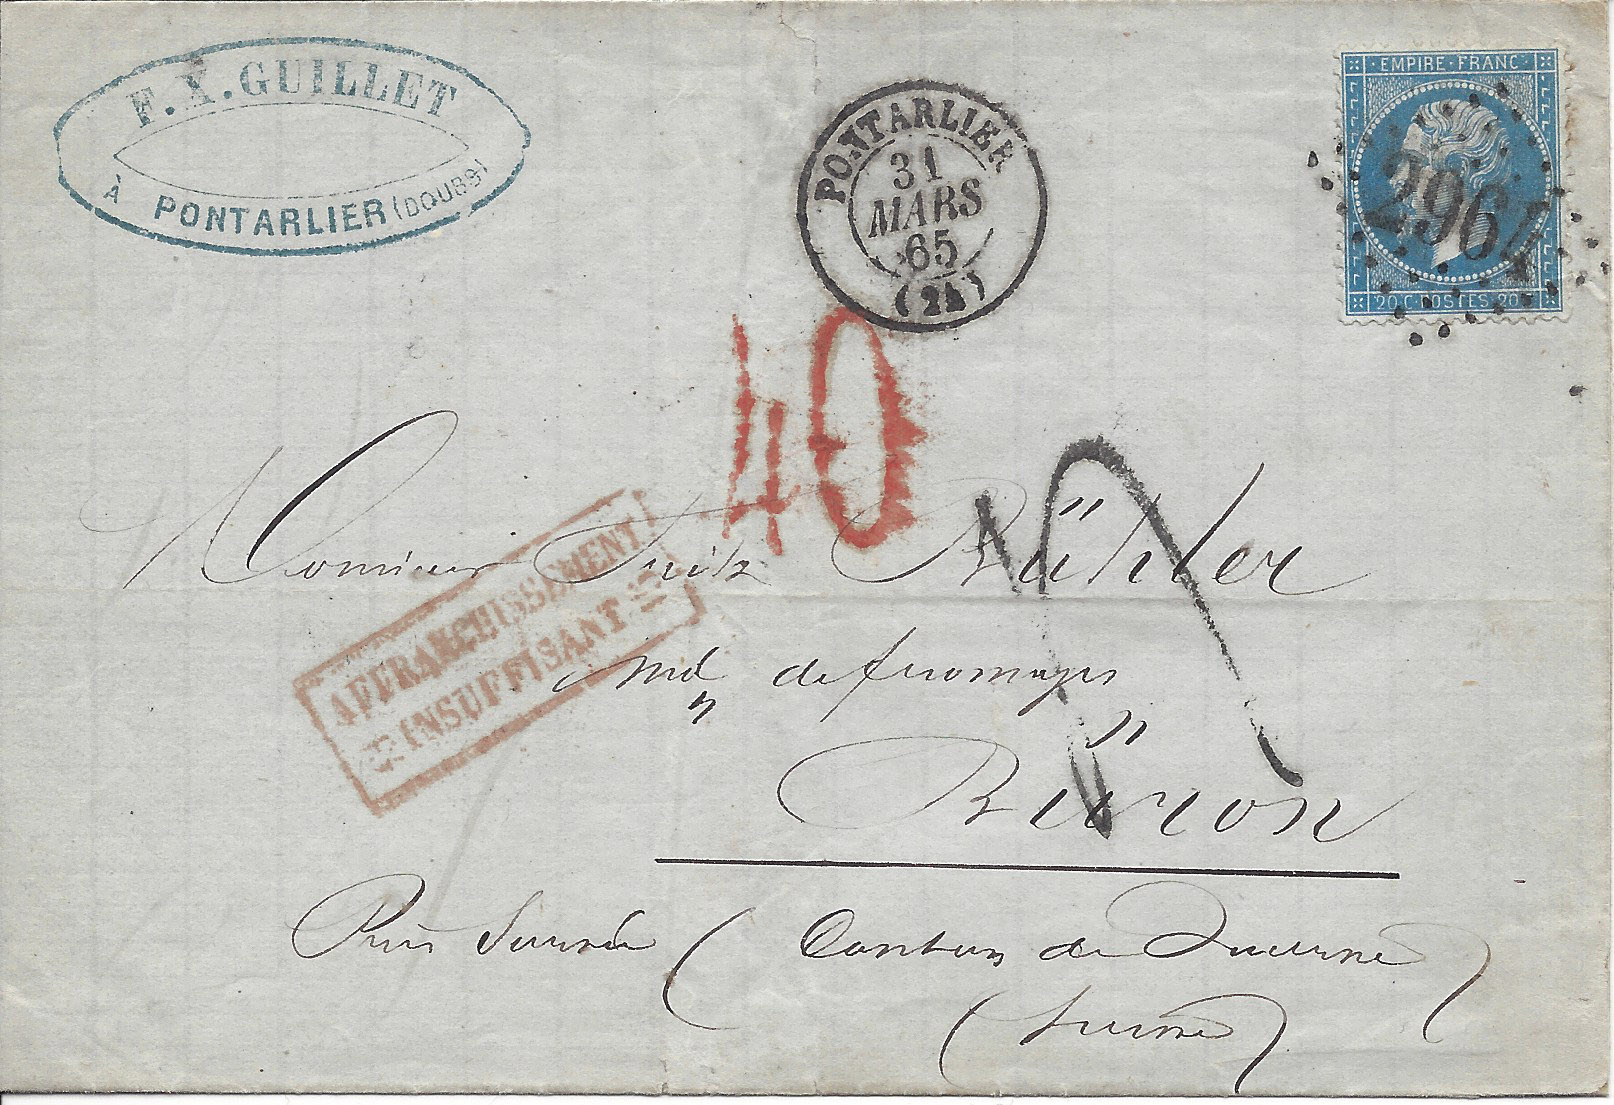 F. X. GUILLET
À PONTARLIER (DOUBS)
PONTARLIER
31
MARS
65
(24)
EMPIRE · FRANC
2964
20 C · POSTES · 20 C
40
AFFRANCHISSEMENT
INSUFFISANT
Monsieur Fritz Bühler
md de fromages
Büron
Près Sursée (Canton de Lucerne)
(Suisse)